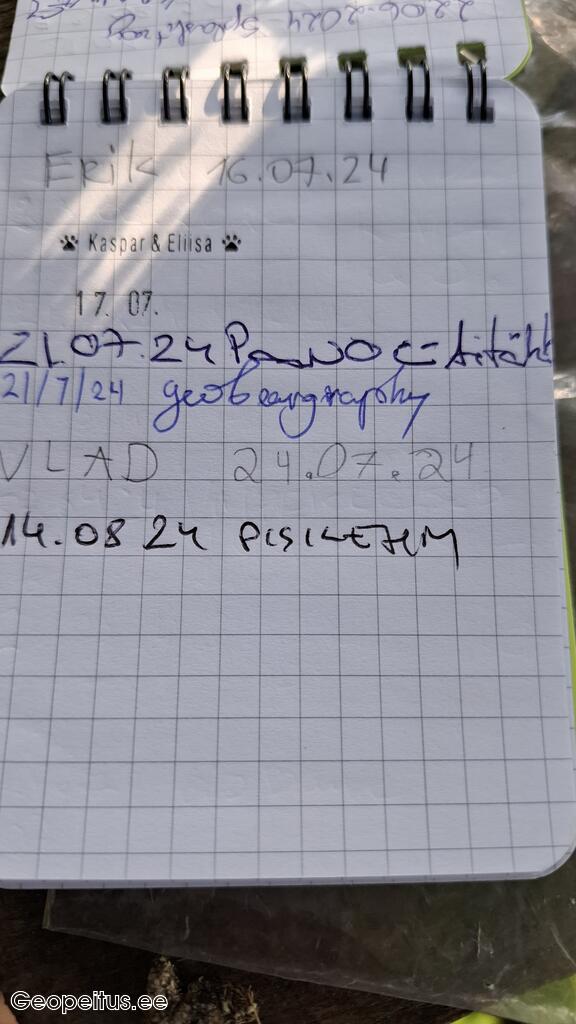 22.06.2024
Erik 16.07.24
Kaspar & Eliisa
17. 07.
21.07.24 aitäh
21/7/24 geobeargraphy
VLAD 24.07.24
14.08 24 PISILEHM
Geopeitus.ee